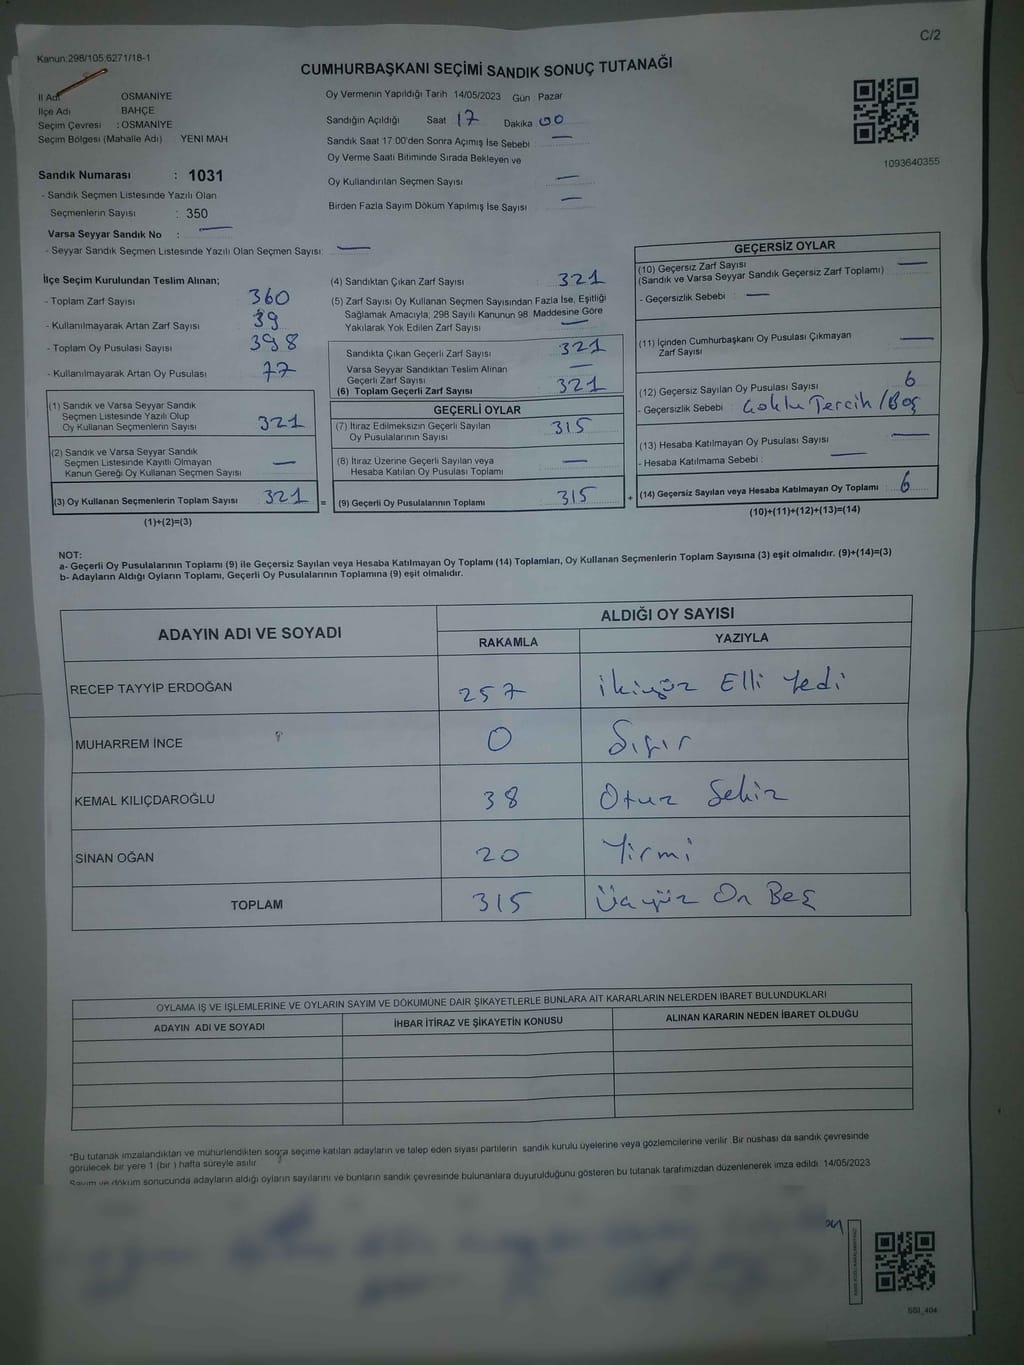 C/2
Kanun:298/105;6271/18-1
CUMHURBAŞKANI SEÇİMİ SANDIK SONUÇ TUTANAĞI
İl Adı OSMANİYE
İlçe Adı BAHÇE
Seçim Çevresi : OSMANİYE
Seçim Bölgesi (Mahalle Adı) YENİ MAH
Oy Vermenin Yapıldığı Tarih 14/05/2023 Gün Pazar
Sandığın Açıldığı Saat 17 Dakika 00
Sandık Saat 17.00'den Sonra Açımış İse Sebebi —
Oy Verme Saati Bitiminde Sırada Bekleyen ve
Oy Kullandırılan Seçmen Sayısı —
Birden Fazla Sayım Döküm Yapılmış İse Sayısı —
1093640355
Sandık Numarası : 1031
- Sandık Seçmen Listesinde Yazılı Olan
Seçmenlerin Sayısı : 350
Varsa Seyyar Sandık No : —
- Seyyar Sandık Seçmen Listesinde Yazılı Olan Seçmen Sayısı: —
İlçe Seçim Kurulundan Teslim Alınan;
- Toplam Zarf Sayısı 360
- Kullanılmayarak Artan Zarf Sayısı 39
- Toplam Oy Pusulası Sayısı 398
- Kullanılmayarak Artan Oy Pusulası 77
(1) Sandık ve Varsa Seyyar Sandık
Seçmen Listesinde Yazılı Olup
Oy Kullanan Seçmenlerin Sayısı 321
(2) Sandık ve Varsa Seyyar Sandık
Seçmen Listesinde Kayıtlı Olmayan
Kanun Gereği Oy Kullanan Seçmen Sayısı —
(3) Oy Kullanan Seçmenlerin Toplam Sayısı 321 =
(1)+(2)=(3)
(4) Sandıktan Çıkan Zarf Sayısı 321
(5) Zarf Sayısı Oy Kullanan Seçmen Sayısından Fazla İse, Eşitliği
Sağlamak Amacıyla, 298 Sayılı Kanunun 98. Maddesine Göre
Yakılarak Yok Edilen Zarf Sayısı —
Sandıkta Çıkan Geçerli Zarf Sayısı 321
Varsa Seyyar Sandıktan Teslim Alınan
Geçerli Zarf Sayısı —
(6) Toplam Geçerli Zarf Sayısı 321
GEÇERLİ OYLAR
(7) İtiraz Edilmeksizin Geçerli Sayılan
Oy Pusulalarının Sayısı 315
(8) İtiraz Üzerine Geçerli Sayılan veya
Hesaba Katılan Oy Pusulası Toplamı —
(9) Geçerli Oy Pusulalarının Toplamı 315 +
GEÇERSİZ OYLAR
(10) Geçersiz Zarf Sayısı
(Sandık ve Varsa Seyyar Sandık Geçersiz Zarf Toplamı) —
- Geçersizlik Sebebi : —
(11) İçinden Cumhurbaşkanı Oy Pusulası Çıkmayan
Zarf Sayısı —
(12) Geçersiz Sayılan Oy Pusulası Sayısı 6
- Geçersizlik Sebebi : Çoklu Tercih / Boş
(13) Hesaba Katılmayan Oy Pusulası Sayısı —
- Hesaba Katılmama Sebebi : —
(14) Geçersiz Sayılan veya Hesaba Katılmayan Oy Toplamı : 6
(10)+(11)+(12)+(13)=(14)
NOT:
a- Geçerli Oy Pusulalarının Toplamı (9) ile Geçersiz Sayılan veya Hesaba Katılmayan Oy Toplamı (14) Toplamları, Oy Kullanan Seçmenlerin Toplam Sayısına (3) eşit olmalıdır. (9)+(14)=(3)
b- Adayların Aldığı Oyların Toplamı, Geçerli Oy Pusulalarının Toplamına (9) eşit olmalıdır.
ADAYIN ADI VE SOYADI ALDIĞI OY SAYISI
RAKAMLA YAZIYLA
RECEP TAYYİP ERDOĞAN 257 İkiyüz Elli Yedi
MUHARREM İNCE 0 Sıfır
KEMAL KILIÇDAROĞLU 38 Otuz Sekiz
SİNAN OĞAN 20 Yirmi
TOPLAM 315 Üçyüz On Beş
OYLAMA İŞ VE İŞLEMLERİNE VE OYLARIN SAYIM VE DÖKÜMÜNE DAİR ŞİKAYETLERLE BUNLARA AİT KARARLARIN NELERDEN İBARET BULUNDUKLARI
ADAYIN ADI VE SOYADI İHBAR İTİRAZ VE ŞİKAYETİN KONUSU ALINAN KARARIN NEDEN İBARET OLDUĞU
*Bu tutanak imzalandıktan ve mühürlendikten sonra seçime katılan adayların ve talep eden siyasi partilerin sandık kurulu üyelerine veya gözlemcilerine verilir. Bir nüshası da sandık çevresinde
görülecek bir yere 1 (bir ) hafta süreyle asılır.
Sayım ve döküm sonucunda adayların aldığı oyların sayılarını ve bunların sandık çevresinde bulunanlara duyurulduğunu gösteren bu tutanak tarafımızdan düzenlenerek imza edildi. 14/05/2023
SSI_404